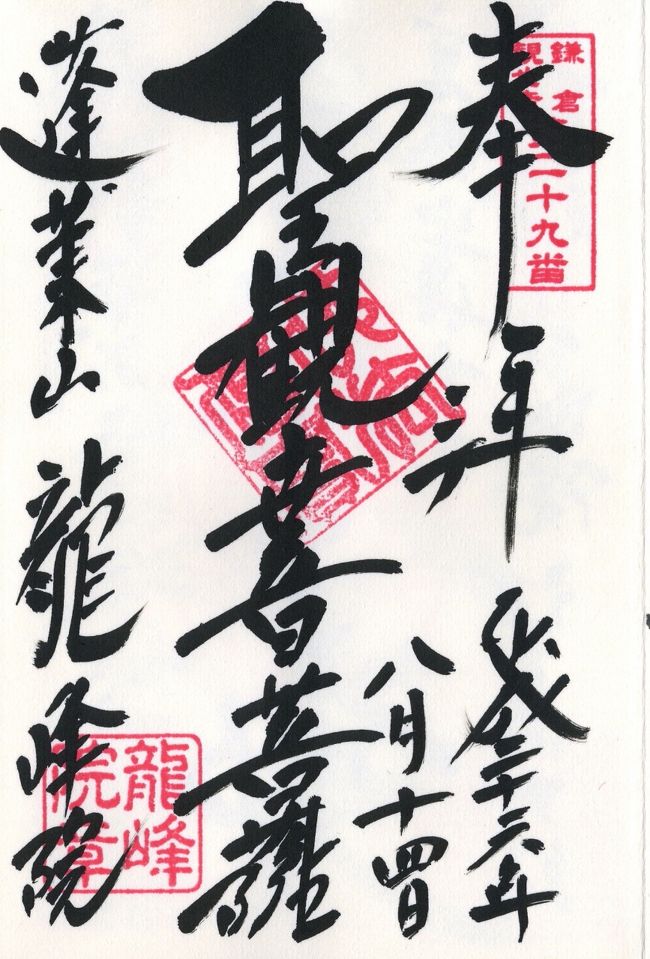 奉拝
鎌倉
二十九番
平成二十六年
八月十四日
聖観世音菩薩
蓬莱山 龍峰院
龍峰
院章